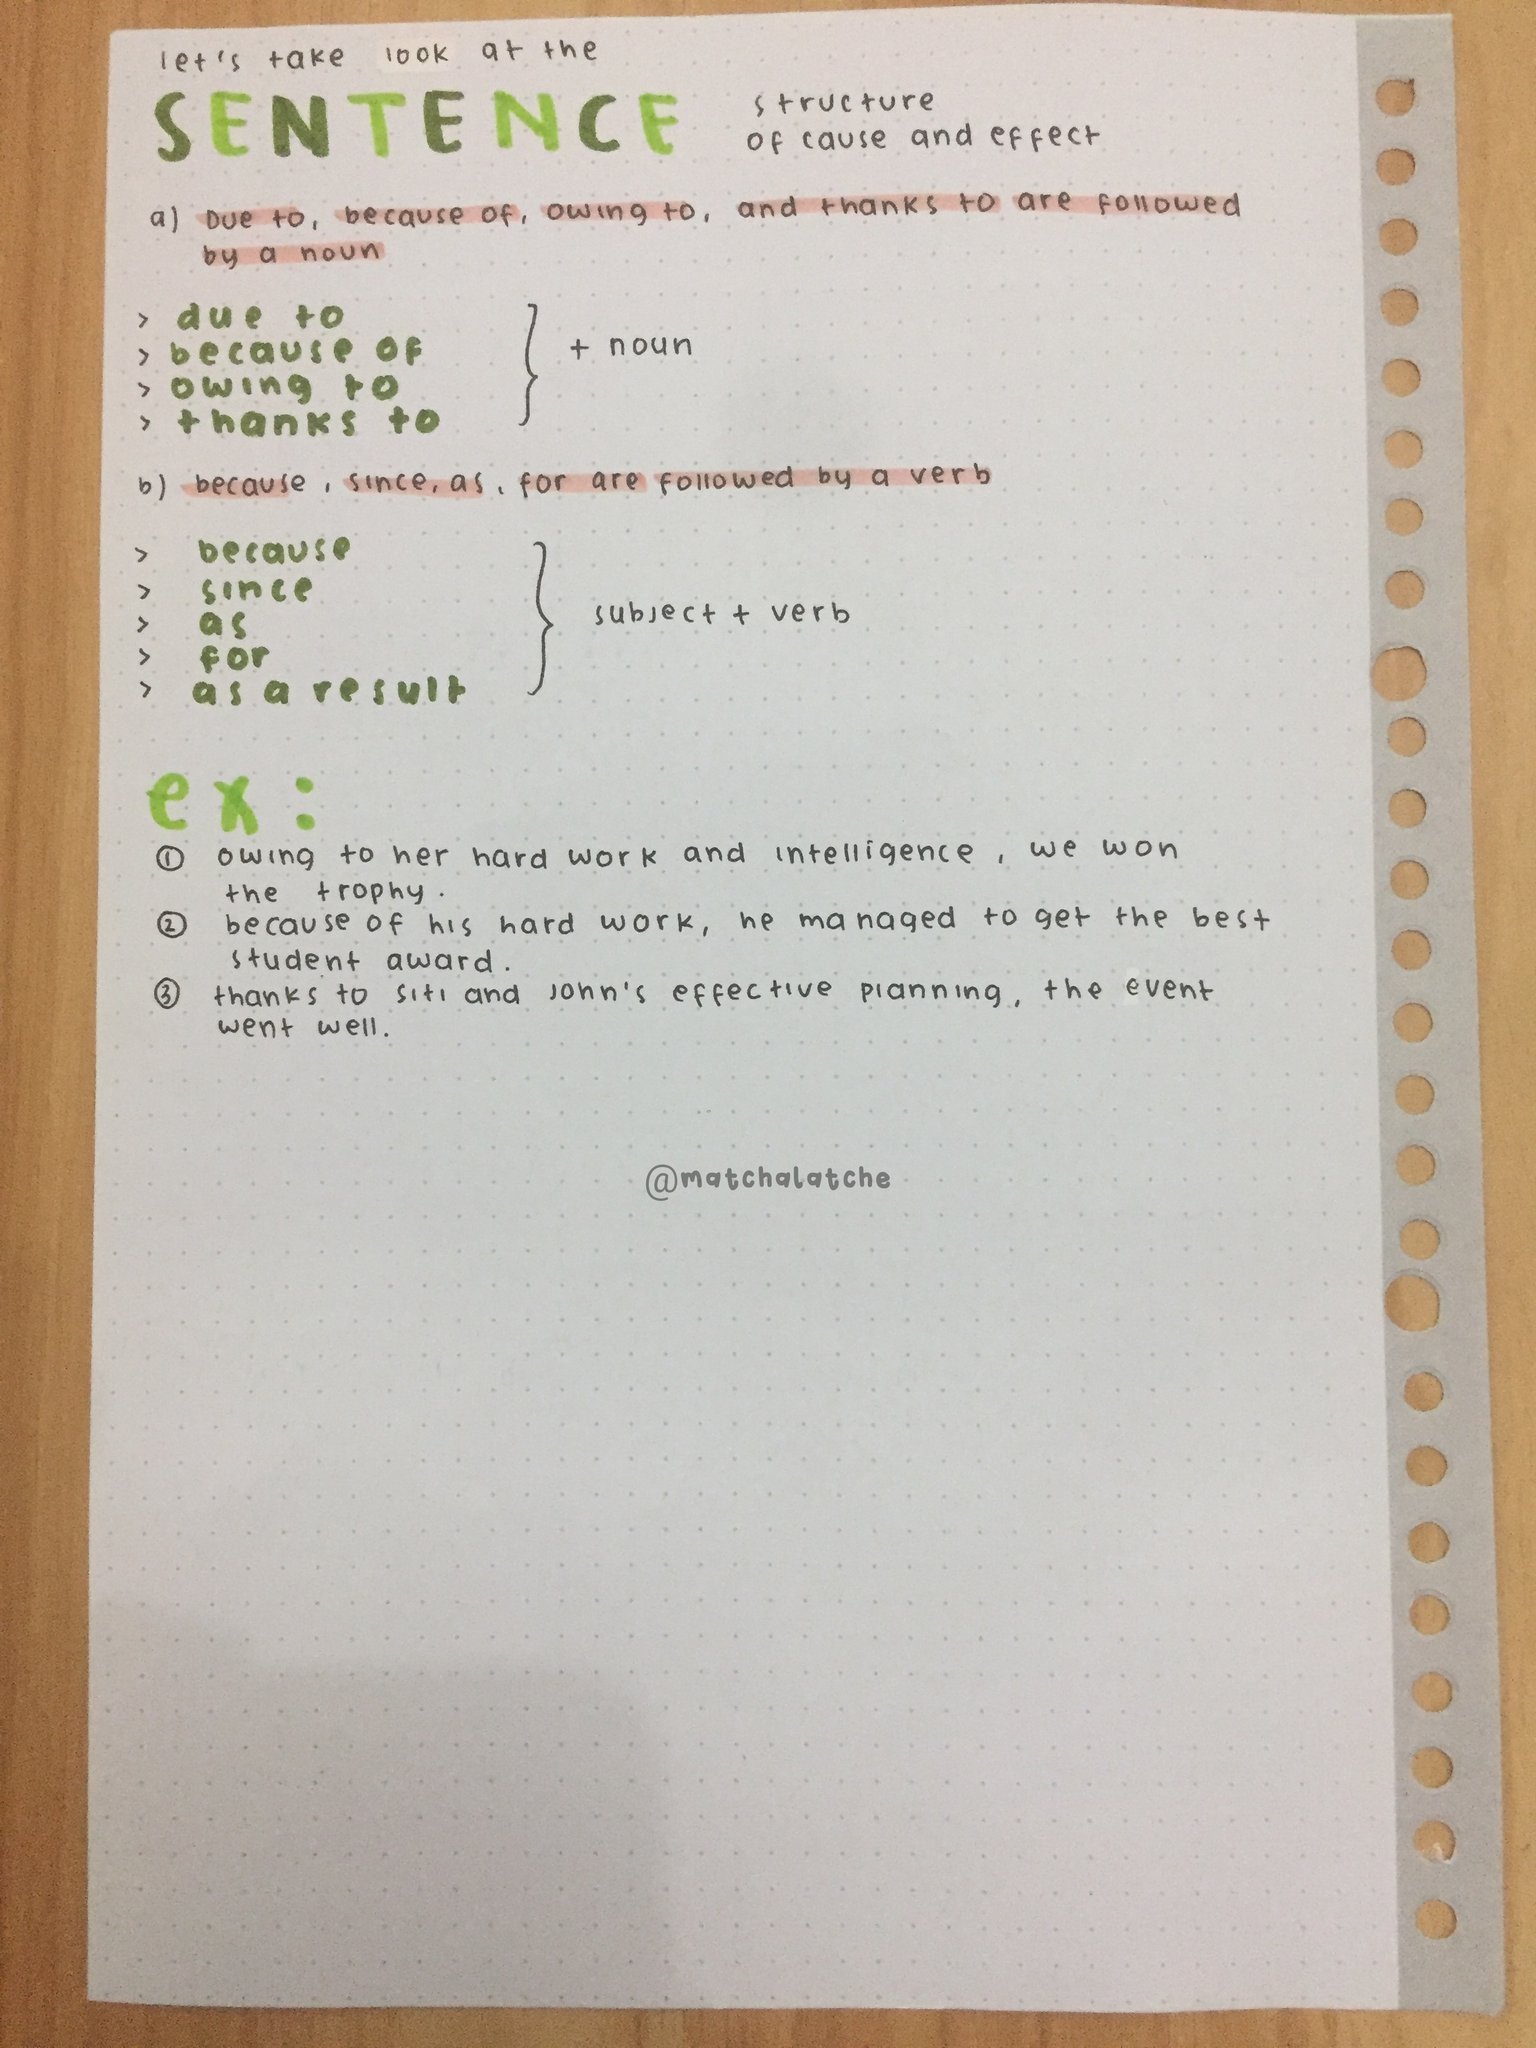 let's take look at the
SENTENCE structure
of cause and effect
a) Due to, because of, owing to, and thanks to are followed
by a noun
> due to
> because of
> owing to
> thanks to
} + noun
b) because, since, as, for are followed by a verb
> because
> since
> as
> for
> as a result
} subject + verb
ex:
① owing to her hard work and intelligence, we won
the trophy.
② because of his hard work, he managed to get the best
student award.
③ thanks to siti and John's effective planning, the event
went well.
@matchalatche